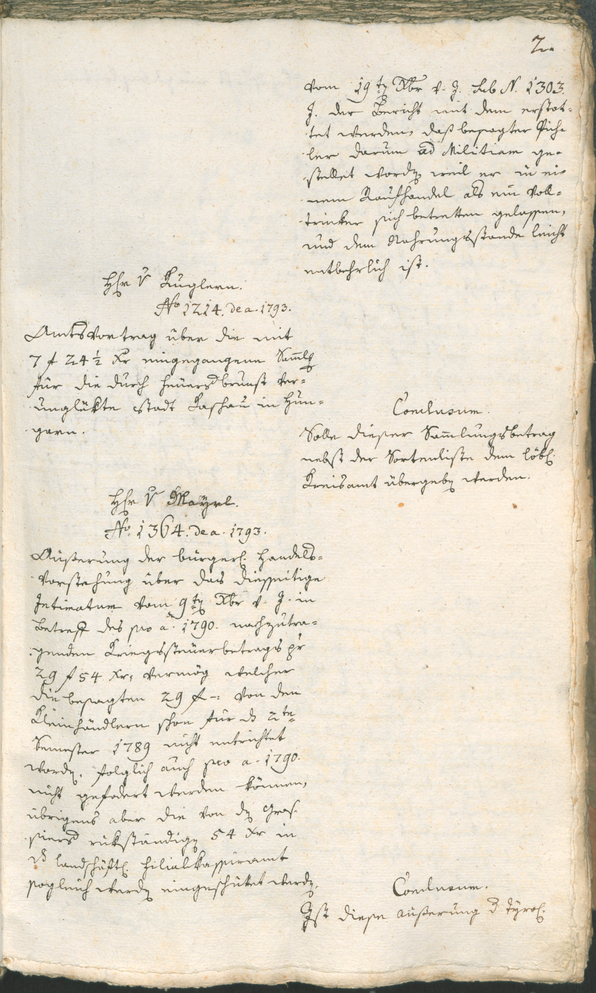 2.
vom 19ten Xbr v. J. sub N. 1303.
J. der Bericht mit dem erstat-
tet werden, daß besagter Pich-
ler darum ad Militiam ge-
stellet worden, weil er in ei-
nem Raufhandel als ein Voll-
trinker sich betretten gelassen,
und dem Nahrungsstande leicht
entbehrlich ist.
Hhr v Kuglern.
No 1214. de a. 1793.
Amtsvortrag über die mit
7 f 24½ Xr eingegangene Samlg
für die durch Feuersbrunst ver-
unglükte Stadt Kaschau in Hun-
garn.
Conclusum.
Solle dieser Sammlungsbetrag
nebst der Sortenliste dem löbl.
Kreisamt übergeben werden.
Hhr v Mayrl.
No. 1364. de a. 1793.
Äußerung der bürgerl. Handels-
vorstehung über das diesseitige
Intimatum vom 9ten Xbr v. J. in
Betreff des pro a. 1790. nachzutra-
genden Kriegssteuerbetrags pr
29 f 54 Xr, vermög welcher
die besagten 29 f -: von den
Kleinhändlern schon für das 2te
Semester 1789 nicht entrichtet
worden, folglich auch pro a. 1790
nicht gefodert werden können,
übrigens aber die von den
rükständigen 54 Xr in
das landschäftl. Filialkassieramt
sogleich werden eingeschikt werden.
Conclusum.
Ist diese Äußerung d. tyrol.